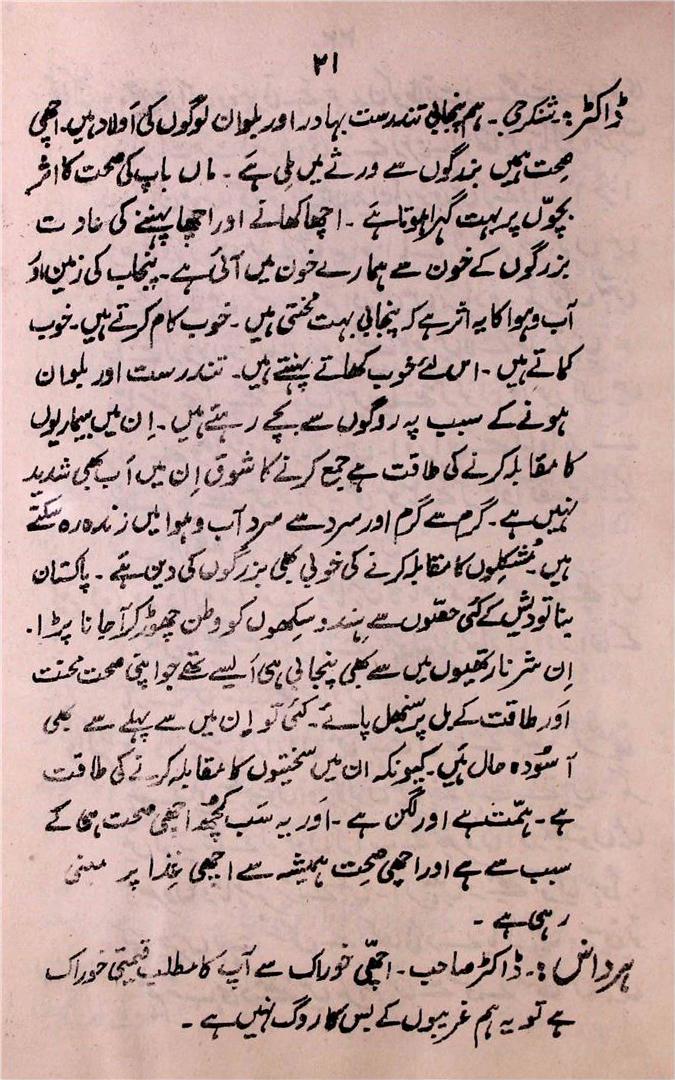 ۲۱
ڈاکٹر :۔ شنکر جی ۔ ہم پنجابی تندرست بہادر اور بلوان لوگوں کی اَولاد ہیں۔ اچھی
صحت ہمیں بزرگوں سے ورثے میں ملی ہے ۔ ماں باپ کی صحت کا اثر
بچوّں پر بہت گہرا ہوتا ہے ۔ اچھا کھانے اور اچھا پہننے کی عادت
بزرگوں کے خون سے ہمارے خون میں آئی ہے۔ پنجاب کی زمین اوَر
آب و ہوا کا یہ اثر ہے کہ پنجابی بہت محنتی ہیں ۔ خوب کام کرتے ہیں۔ خوب
کماتے ہیں ۔ اس لئے خوب کھاتے پہنتے ہیں۔ تندرست اور بلوان
ہونے کے سبب یہ روگوں سے بچے رہتے ہیں ۔ اِن میں بیماریوں
کا مقابلہ کرنے کی طاقت ہے جمع کرنے کا شوق اِن میں اَب بھی شدید
نہیں ہے ۔ گرم سے گرم اور سرد سے سرد آب و ہوا میں زندہ رہ سکتے
ہیں۔ مُشکلوں کا مقابلہ کرنے کی خوبی بھی بزرگوں کی دین ہے ۔ پاکستان
بنا تو دیش کے کئی حصّوں سے ہندو سکھوں کو وطن چھوڑ کر آ جانا پڑا ۔
اِن شرنارتھیوں میں سے بھی پنجابی ہی اَیسے تھے جو اپنی صحت محنت
اوَر طاقت کے بل پر سنبھل پائے ۔ کئی تو اِن میں سے پہلے سے بھی
آسُودہ حال ہَیں۔ کیونکہ ان میں سختیوں کا مقابلہ کرنے کی طاقت
ہے ۔ ہمّت ہے اور لگن ہے ۔ اَور یہ سَب کچُھ اچھی صحت ہی کے
سبب سے ہے اور اچھی صحت ہمیشہ سے اچھی غِذا پر مبنی
رہی ہے ۔
ہر داس :۔ ڈاکٹر صاحب ۔ اچھّی خوراک سے آپ کا مطلب قیمتی خوراک
ہے تو یہ ہم غریبوں کے بس کا روگ نہیں ہے ۔